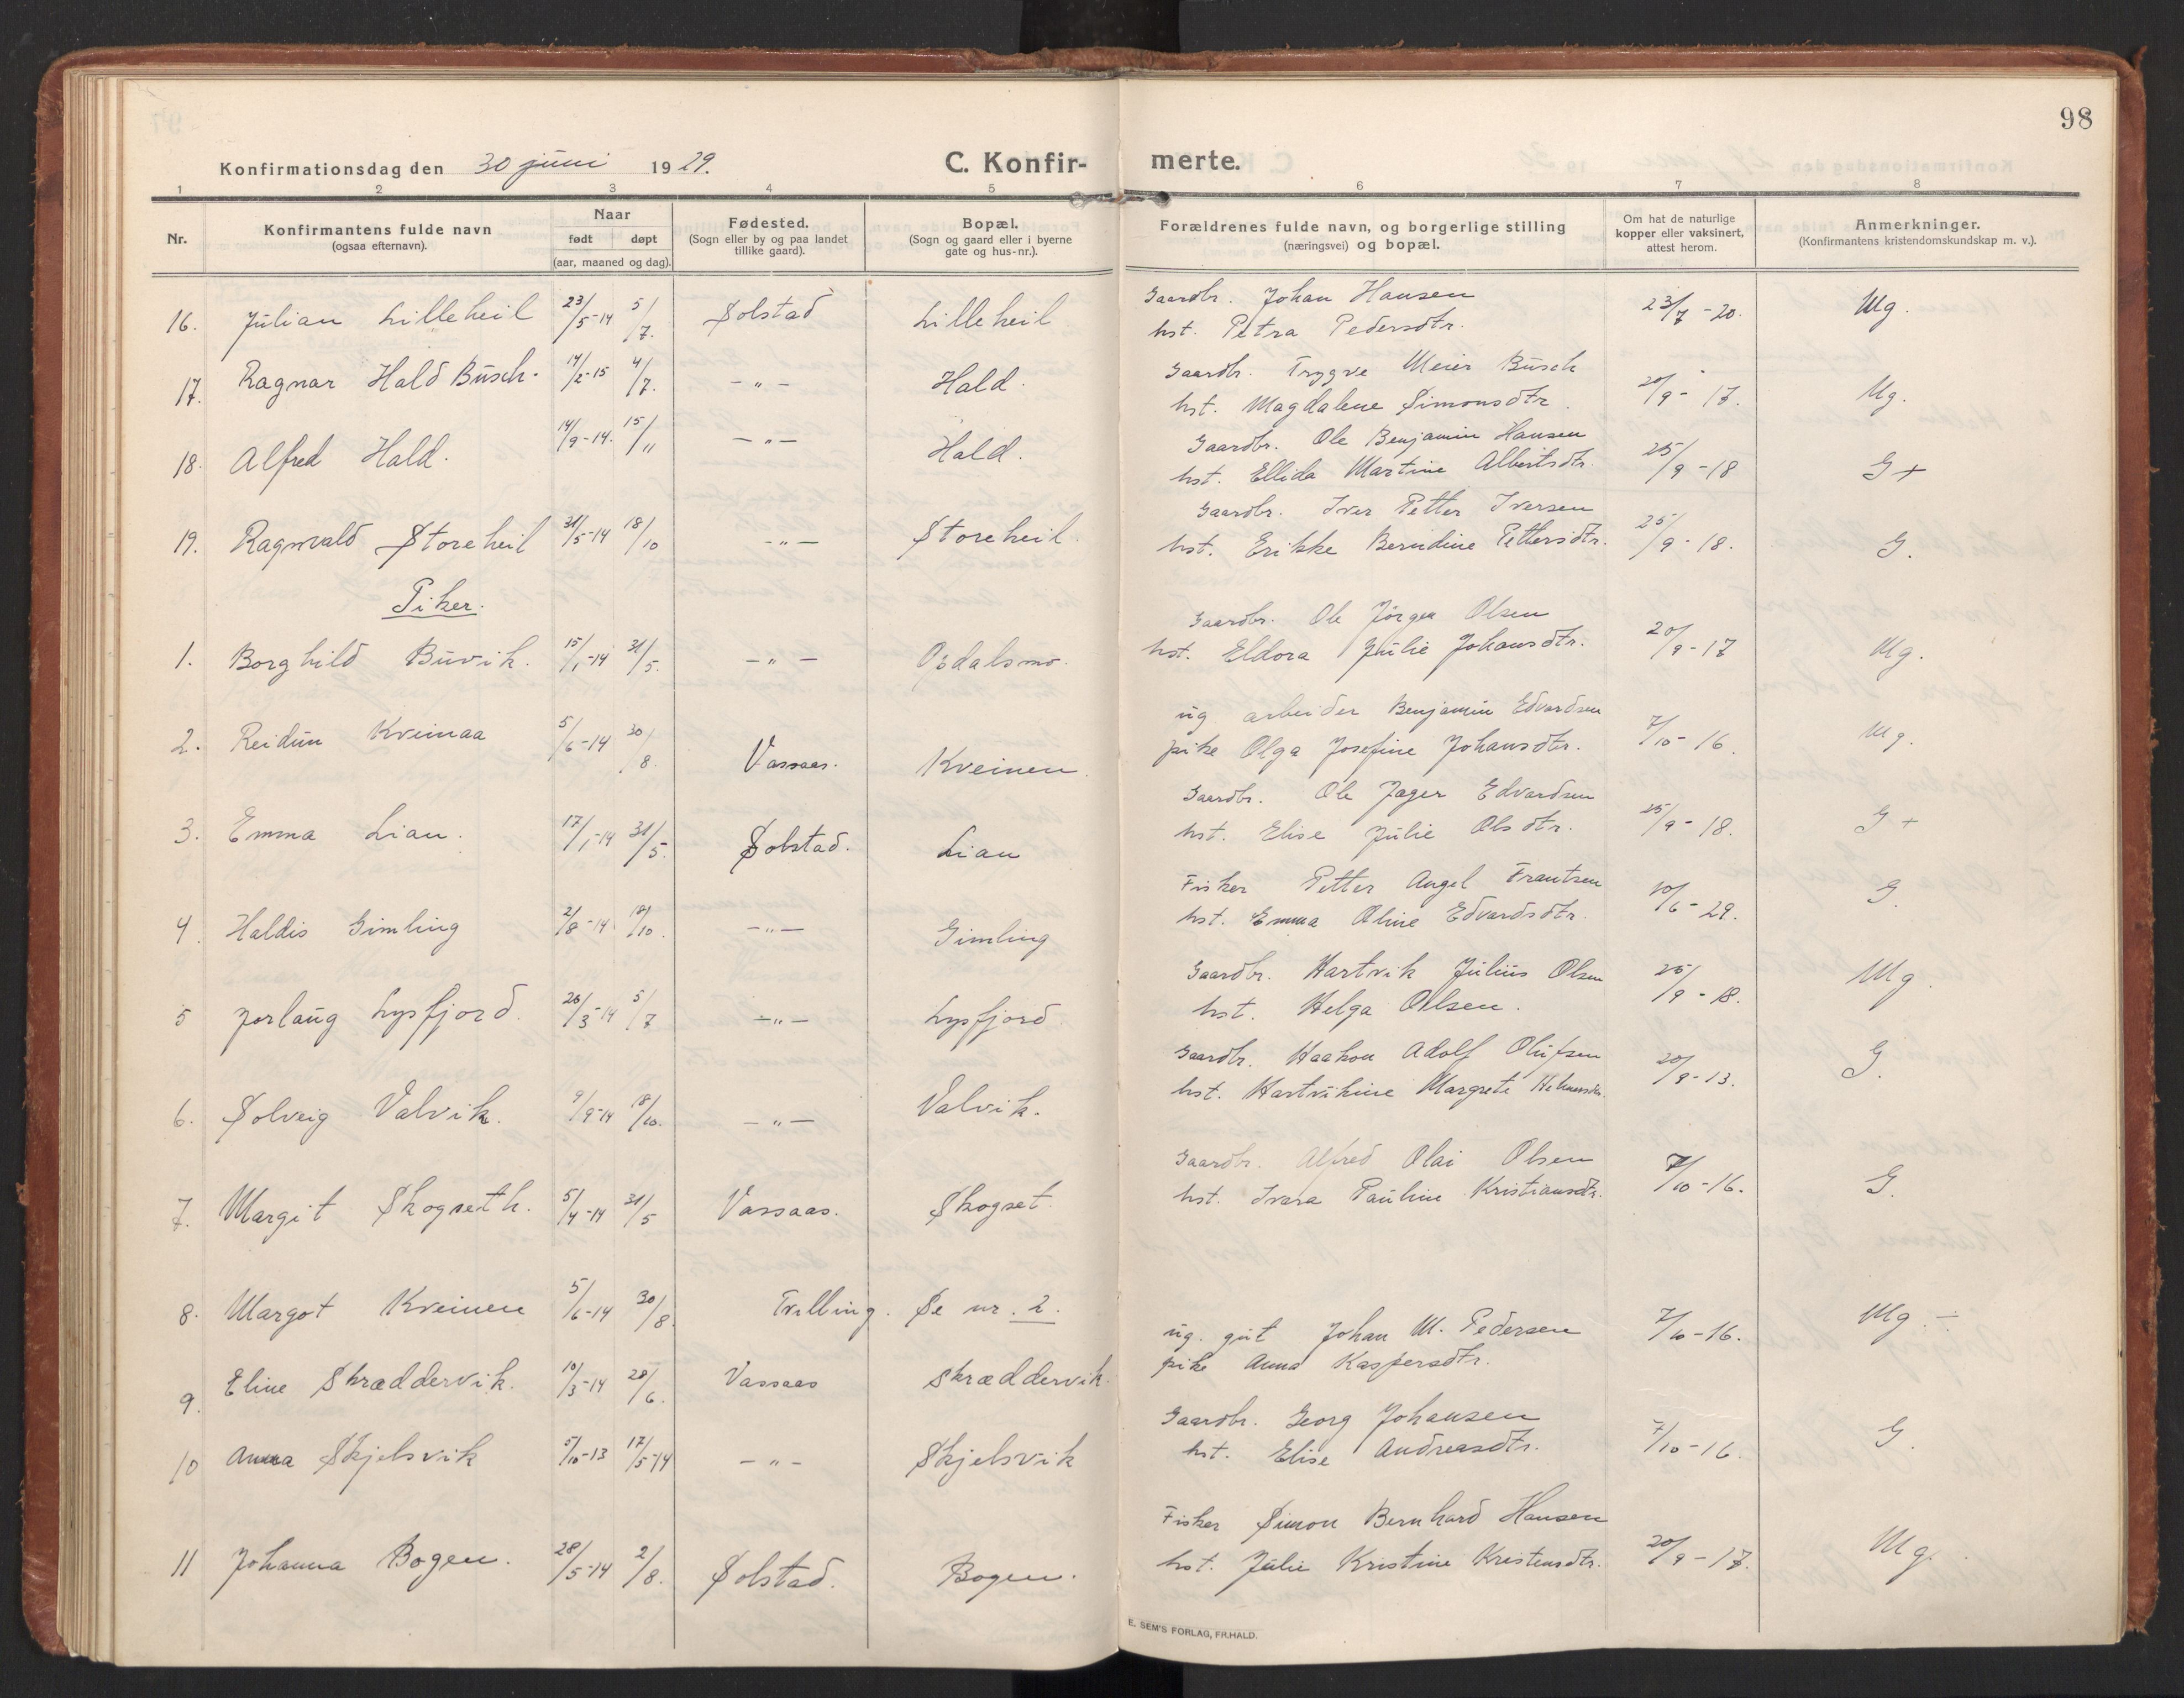 98
Konfirmationsdag den 30 juni 1929. C. Konfir- merte.
1 2 3 4 5 6 7 8
Nr. Konfirmantens fulde navn (ogsaa efternavn). Naar født døpt (aar, maaned og dag). Fødested. (Sogn eller by og paa landet tillike gaard). Bopæl. (Sogn og gaard eller i byerne gate og hus-nr.). Forældrenes fulde navn, og borgerlige stilling (næringsvei) og bopæl. Om hat de naturlige kopper eller vaksinert, attest herom. Anmerkninger. (Konfirmantens kristendomskundskap m. v.).
16. Julian Lilleheil 23/5-14 5/7. Solstad Lilleheil Gaardbr. Johan Hansen 23/7-20. Mg.
hst. Petra Pedersdtr.
17. Ragnar Hald Busch. 14/2-15 4/7. -"- Hald. Gaardbr. Trygve Meier Busch 20/9-17. Mg.
hst. Magdalene Simonsdtr.
18. Alfred Hald. 14/9-14. 15/11 -"- Hald. Gaardbr. Ole Benjamin Hansen 25/9-18 G+
hst. Ellida Martine Albertsdtr.
19. Ragnvald Storeheil 31/5-14 18/10 -"- Storeheil. Gaardbr. Iver Petter Iversen 25/9-18. G.
hst. Erikke Berndine Pettersdtr.
Piker.
1. Borghild Buvik. 15/1-14 31/5. -"- Opdalsmo. Gaardbr. Ole Jörgen Olsen 20/9-17 Mg.
hst. Eldora Julie Johansdtr.
2. Reidun Kveinaa 5/6-14 30/8. Vassaas. Kveinen. ug arbeider Benjamin Edvardsen 7/10-16. Mg.
pike Olga Josefine Johansdtr.
3. Emma Lian. 17/1-14 31/5. Solstad. Lian Gaardbr. Ole Jager Edvardsen 25/9-18. G+
hst. Elise Julie Olsdtr.
4. Haldis Gimling 2/8-14 18/10. -"- Gimling Fisker Petter Angel Frantsen 10/6-29. G.
hst. Emma Oline Edvardsdtr.
5 Jorlaug Lysfjord. 26/3-14 5/7 -"- Lysfjord Gaardbr. Hartvik Julius Olsen 25/9-18. Mg.
hst. Helga Olsen.
6. Solveig Valvik. 9/9-14 18/10. -"- Valvik. Gaardbr. Haakon Adolf Olufsen 20/9-13. G.
hst. Hartvikine Margrete
7. Margit Skogseth. 5/4-14 31/5 Vassaas. Skogset. Gaardbr. Alfred Olai Olsen 7/10-16. G.
hst. Ivara Pauline Kristiansdtr.
8. Margot Kveinen 5/6-14 30/8. Tvilling. Se nr. 2.
9. Eline Skræddervik. 10/3-14 28/6. Vassaas Skræddervik. ug. gut Johan M. Pedersen 7/10-16. Mg.-
pike Anna Kaspersdtr.
10 Anna Skjelsvik 5/10-13 17/5-14 -"- Skjelsvik Gaardbr. Georg Johansen 7/10-16. G.
hst. Elise Andreasdtr.
11 Johanna Bogen. 28/5-14 2/8. Solstad. Bogen. Fisker Simon Bernhard Hansen 20/9-17. Mg.
hst. Julie Kristine Kristensdtr.
E. SEM'S FORLAG, FR.HALD.